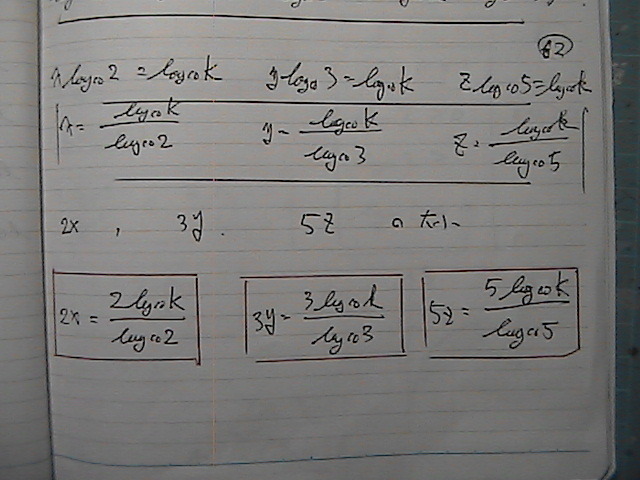 62
x log₁₀2 = log₁₀k y log₁₀3 = log₁₀k z log₁₀5 = log₁₀k
x = log₁₀k / log₁₀2 y = log₁₀k / log₁₀3 z = log₁₀k / log₁₀5
2x , 3y . 5z
2x = 2 log₁₀k / log₁₀2 3y = 3 log₁₀k / log₁₀3 5z = 5 log₁₀k / log₁₀5